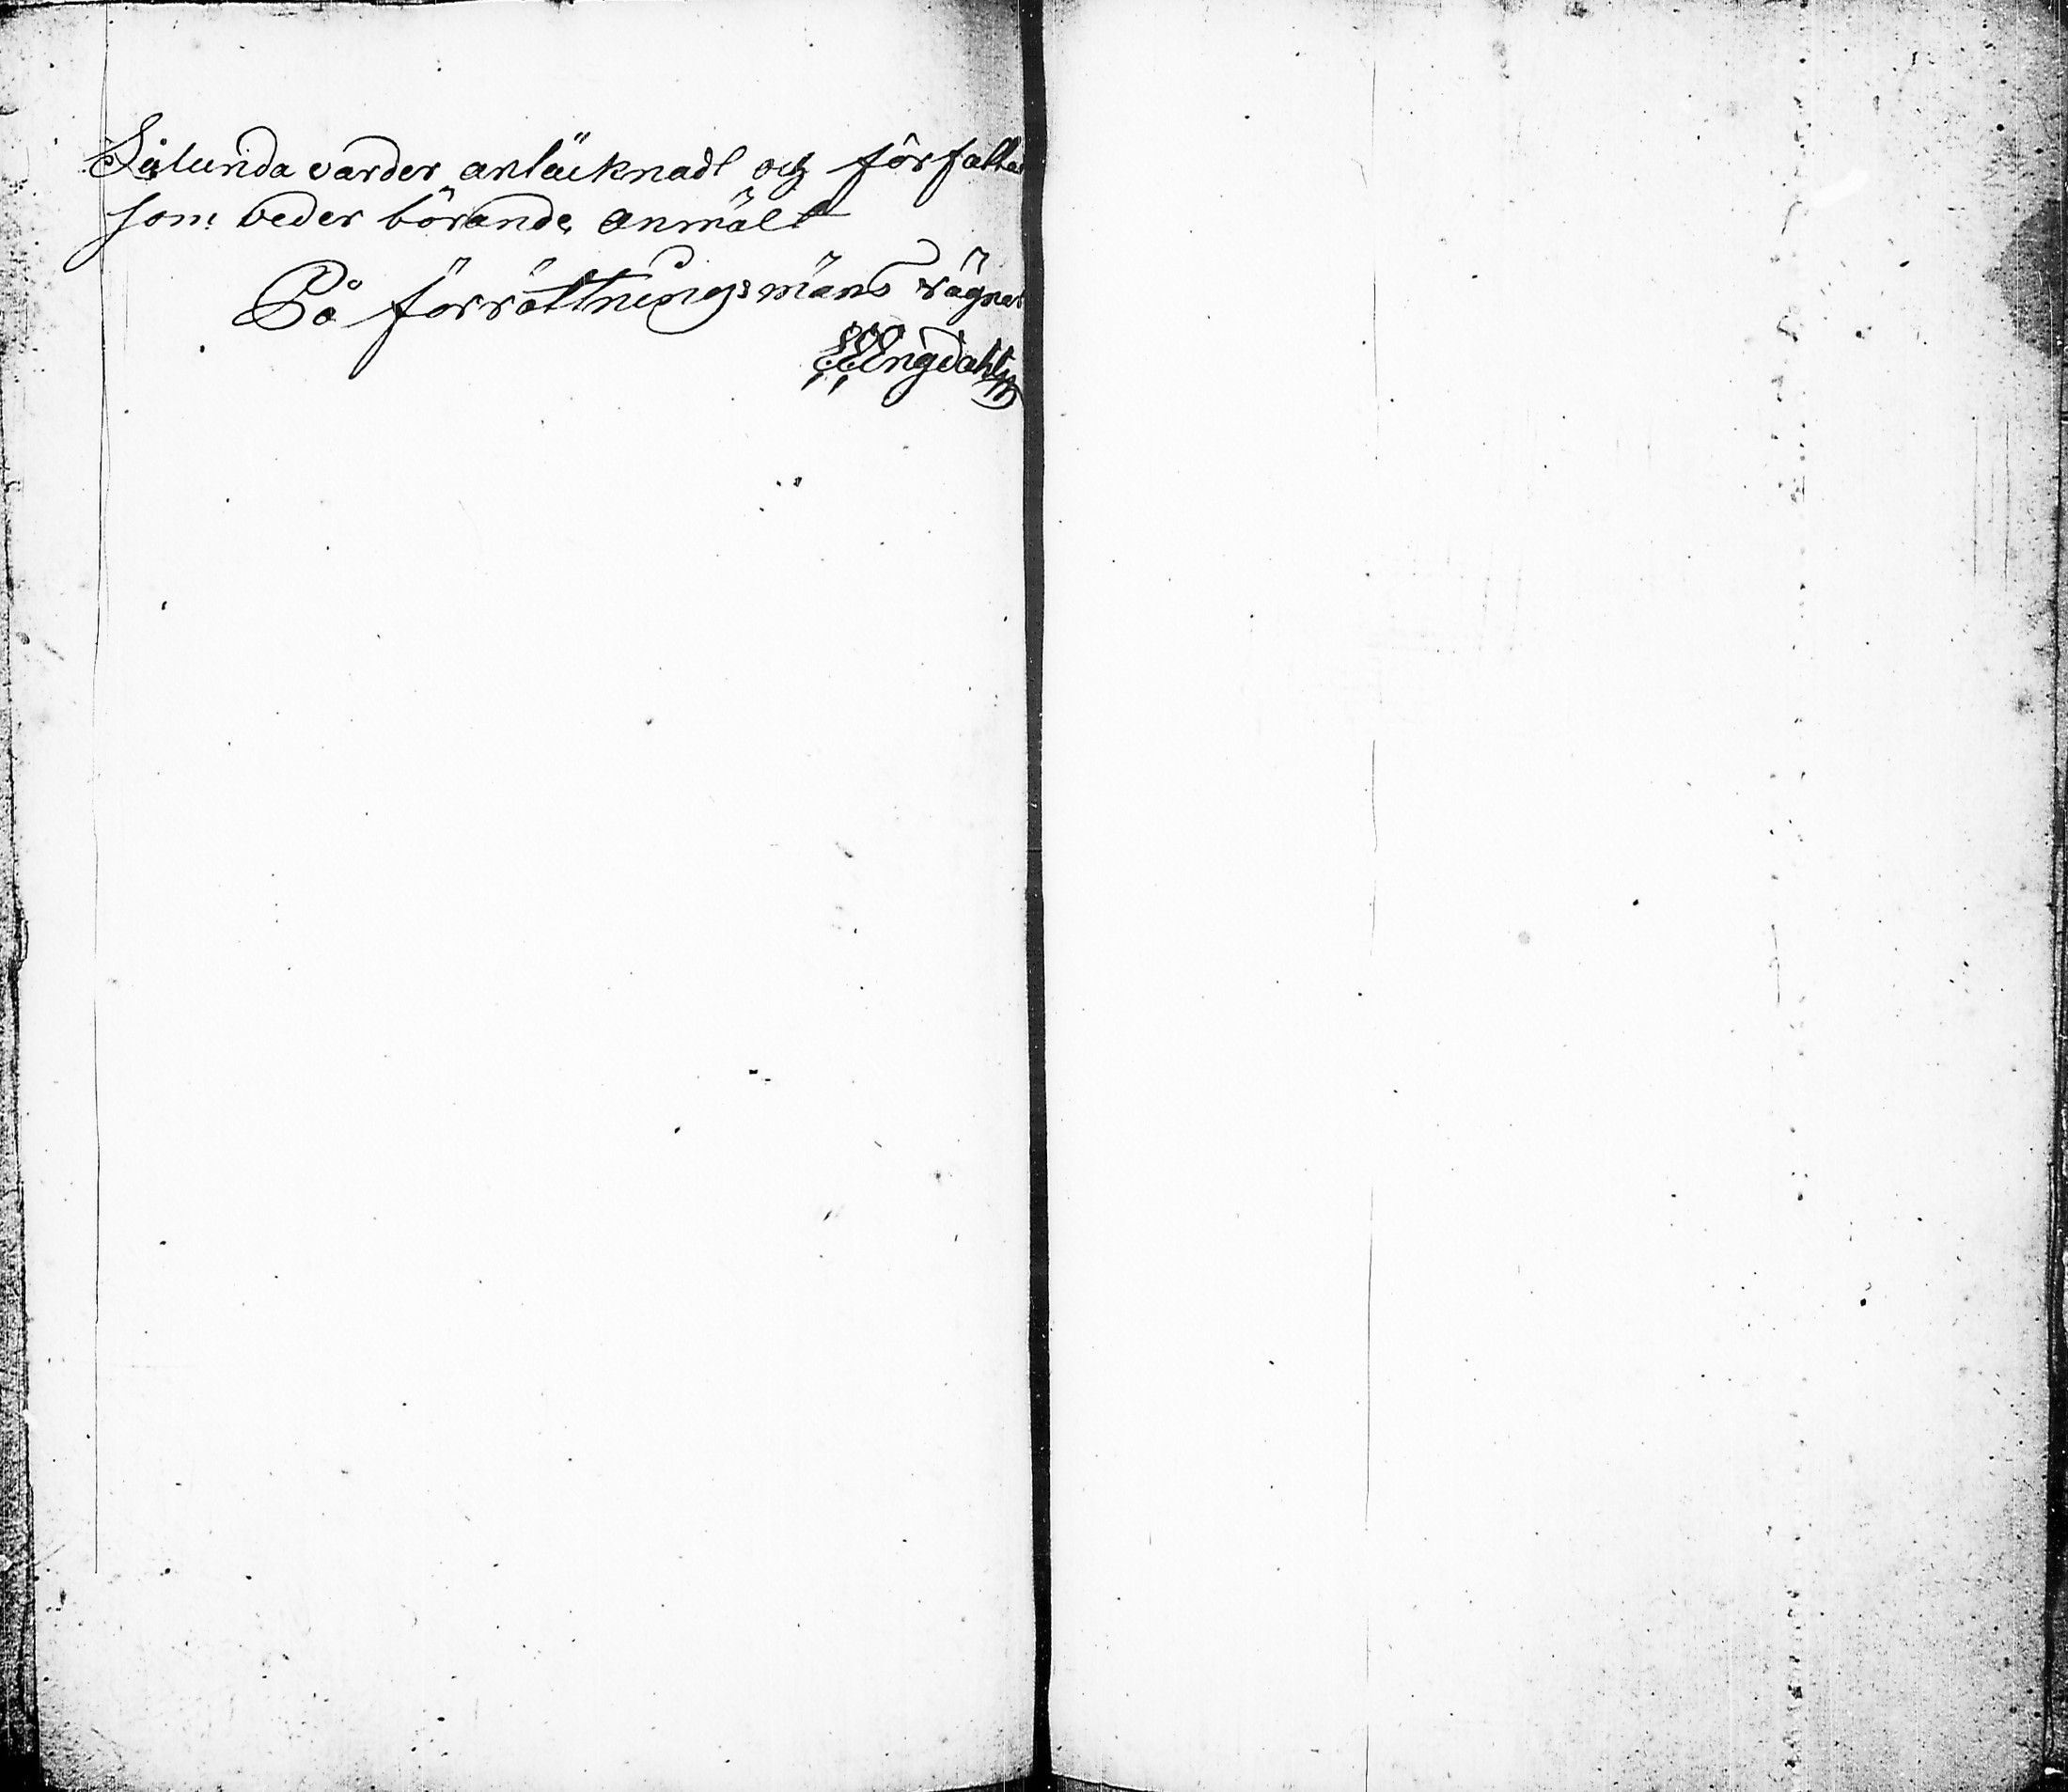 Sålunda varder antäcknadt och författa
som veder börande anmält
På förrättningsmäns vägna
Engdahl